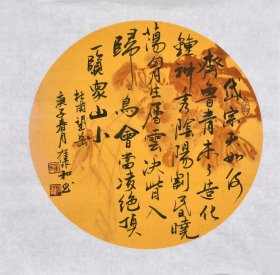 岱宗夫如何
齊魯青未了造化
鍾神秀陰陽割昏曉
蕩胸生層雲決眥入
歸鳥會當凌絕頂
一覽眾山小
杜甫望岳
庚子春月和書